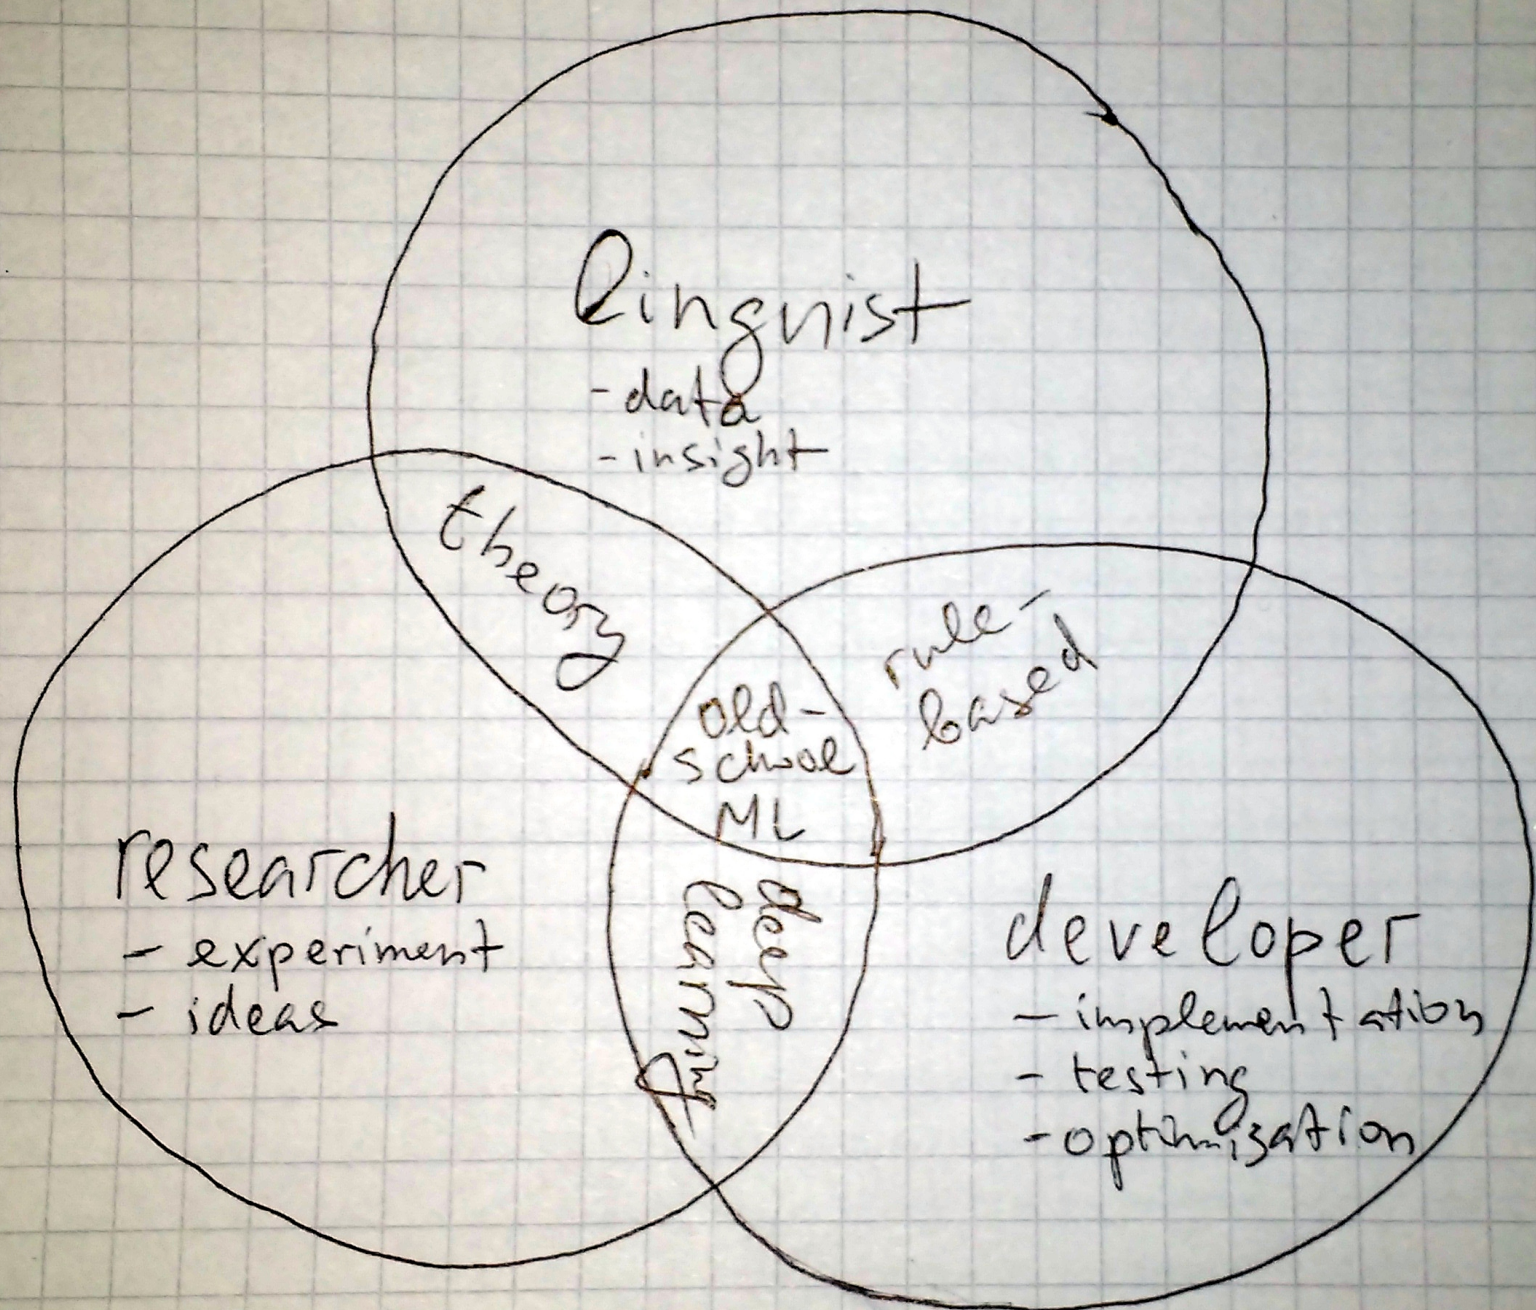 linguist
- data
- insight
theory
rule-
based
old-
school
ML
researcher
- experiment
- ideas
deep
learning
developer
- implementation
- testing
- optimization